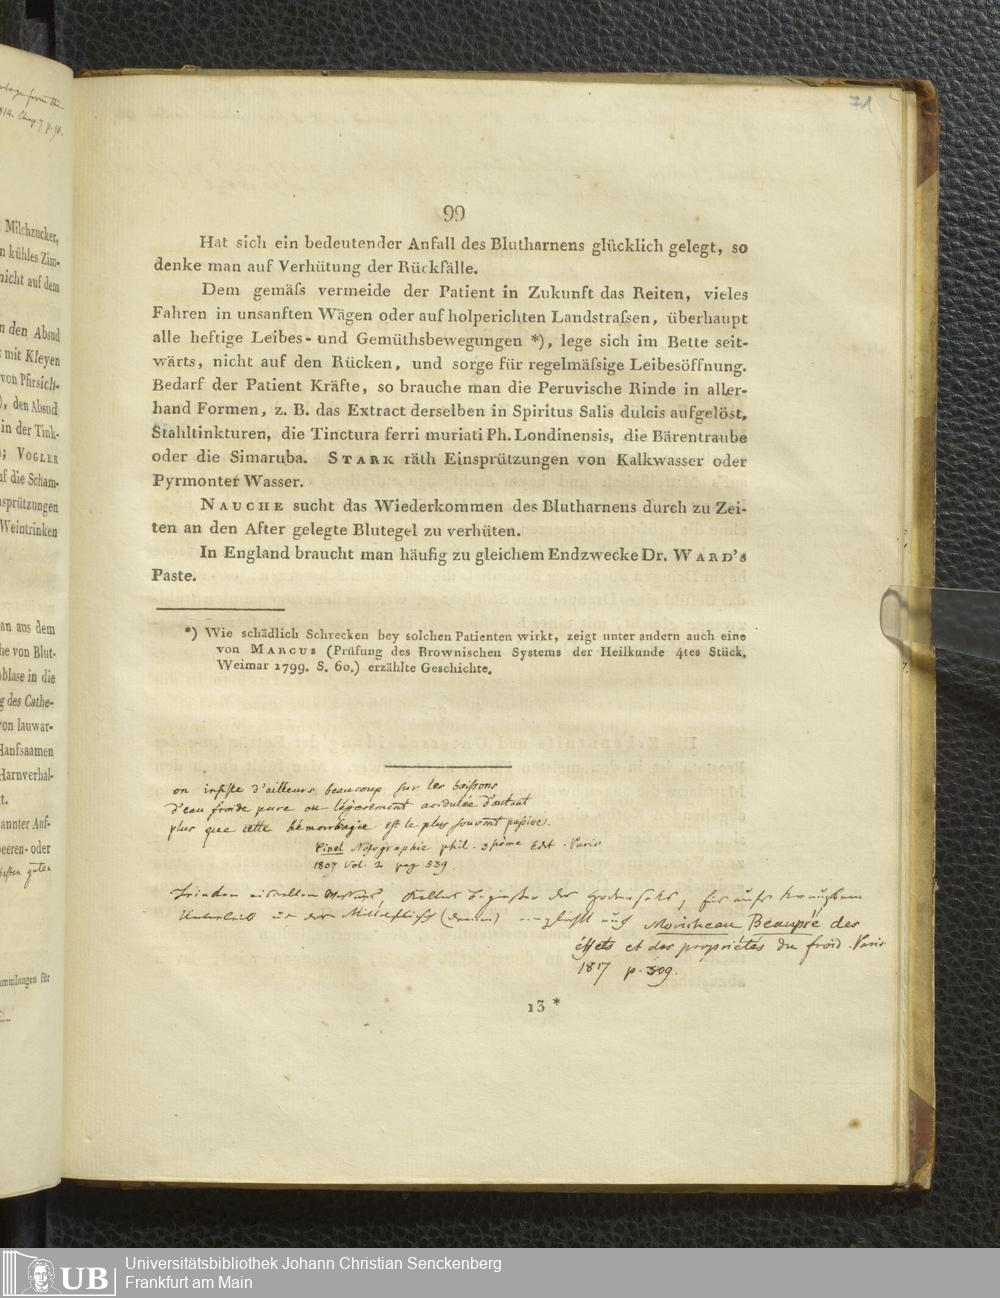 71
99
Hat sich ein bedeutender Anfall des Blutharnens glücklich gelegt, so
denke man auf Verhütung der Rückfälle.
Dem gemäſs vermeide der Patient in Zukunft das Reiten, vieles
Fahren in unsanften Wägen oder auf holperichten Landstraſsen, überhaupt
alle heftige Leibes- und Gemüthsbewegungen *), lege sich im Bette seit-
wärts, nicht auf den Rücken, und sorge für regelmäſsige Leibesöffnung.
Bedarf der Patient Kräfte, so brauche man die Peruvische Rinde in aller-
hand Formen, z. B. das Extract derselben in Spiritus Salis dulcis aufgelöst,
Stahltinkturen, die Tinctura ferri muriati Ph. Londinensis, die Bärentraube
oder die Simaruba. STARK räth Einsprützungen von Kalkwasser oder
Pyrmonter Wasser.
NAUCHE sucht das Wiederkommen des Blutharnens durch zu Zei-
ten an den After gelegte Blutegel zu verhüten.
In England braucht man häufig zu gleichem Endzwecke Dr. WARD's
Paste.
*) Wie schädlich Schrecken bey solchen Patienten wirkt, zeigt unter andern auch eine
von MARCUS (Prüfung des Brownischen Systems der Heilkunde 4tes Stück.
Weimar 1799. S. 60.) erzählte Geschichte.
on insiste d'ailleurs beaucoup sur les boissons
d'eau froide pure ou légèrement acidulée d'autant
plus que cette hémorrhagie est le plus souvent passive.
Pinel Nosographie phil. Edit. Paris
1807 Vol. 2 pag 539
der
Unterleib (Perineum) auch Moricheau Beaupré des
effets et des propriétés du froid. Paris
1817 p. 309.
13 *
Milchzucker,
n kühles Zim-
nicht auf dem
n den Absud
mit Kleyen
von Pfirsich-
), den Absud
in der Tink-
; VOGLER
uf die Scham-
nsprützungen
Weintrinken
an aus dem
he von Blut-
blase in die
g des Cathe-
von lauwar-
Hanfsaamen
Harnverhal-
t.
annter Auf-
beeren- oder
ammlungen für
UB
Universitätsbibliothek Johann Christian Senckenberg
Frankfurt am Main